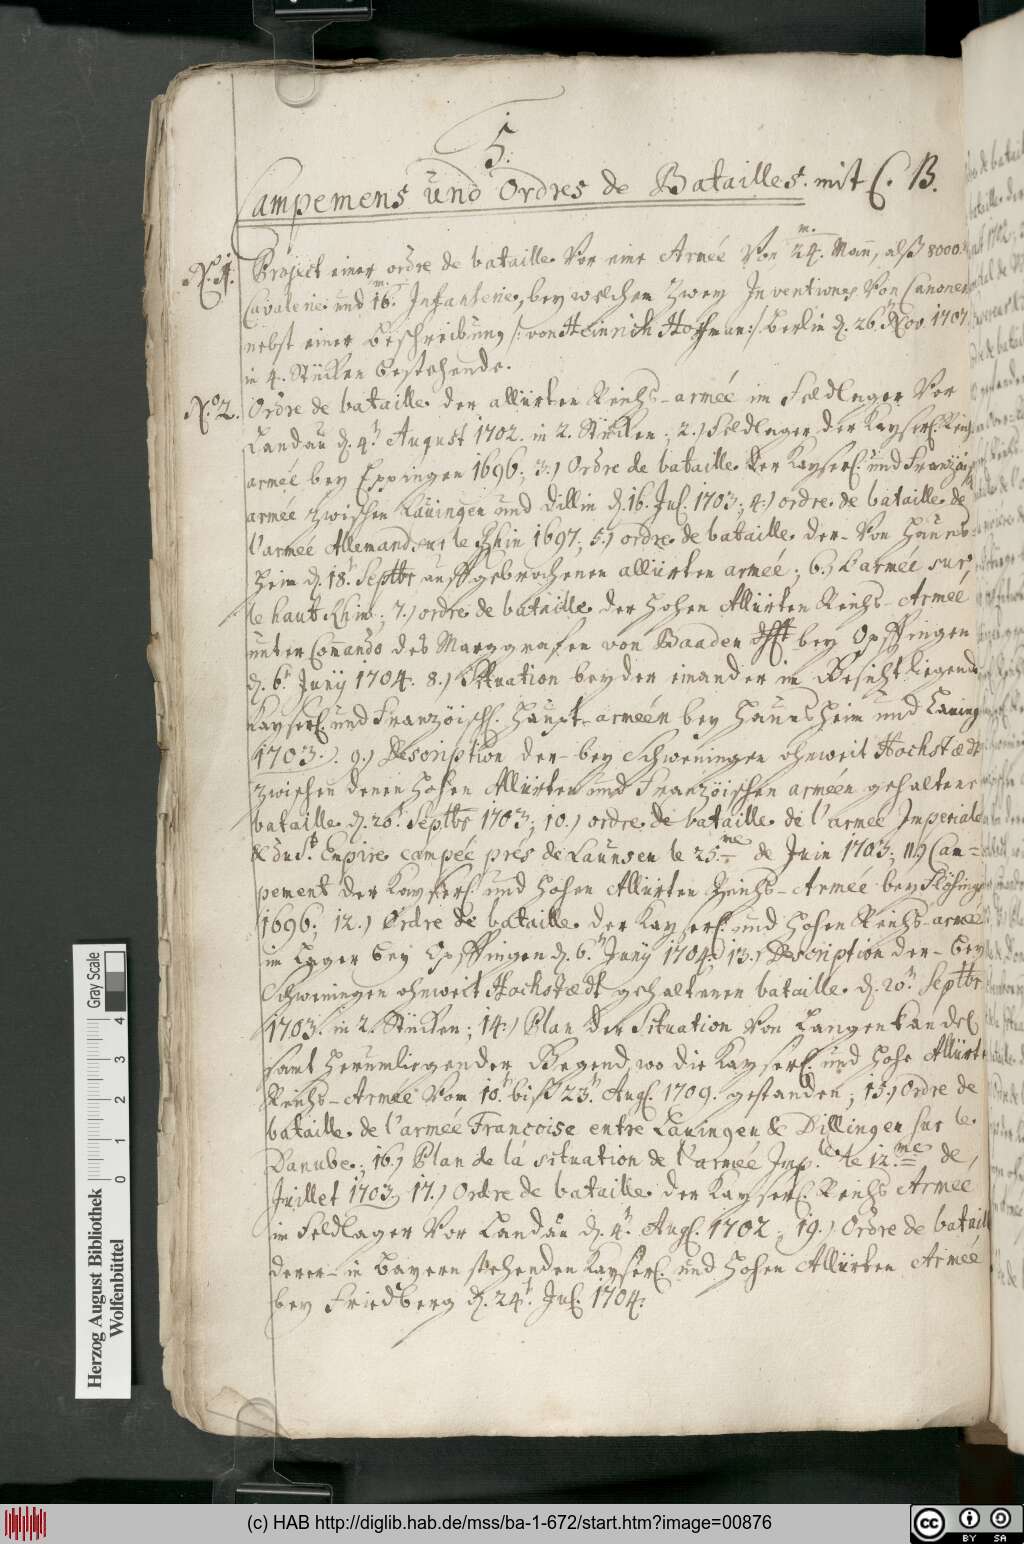 5.
Campemens und Ordres de Batailles. mit C. B.
N.º 1. Project einer ordre de bataille vor eine Armée von 24.m. Mann, alß 8000.
Cavalerie und 16.m. Infanterie, bey welchen zwey Inventiones von Canonen
nebst einer Beschreibung /: von Heinrich Hoffman :/ Berlin d. 26. Nov. 1707.
in 4. Stücken bestehende.
N.º 2. Ordre de bataille der alliirten Reichs-armée im Feldlager vor
Landau d. 4.t August 1702. in 2. Stücken; 2.) Feldlager der Kayserl. Reichs
armée bey Eppingen 1696; 3.) Ordre de bataille der Kayserl. und Franzöis.
armée zwischen Lauingen und Dillin d. 16. Jul. 1703; 4.) ordre de bataille de
l'armeé Allemand sur le Rhin 1697; 5.) ordre de bataille der- von Hauns-
heim d. 18.t Septbr auffgebrochenen alliirten armeé; 6.) L'armée sur
le haut Rhin; 7.) ordre de bataille der hohen Alliirten Reichs-Armeé
unter Comando des Marggrafen von Baaden bey Opffingen
d. 6.t Junÿ 1704. 8.) Situation beyder einander in Gesicht liegende
Kayserl. und Franzöischl. Haupt-armeén bey Haunsheim und Lauing
1703.). 9.) Description der- bey Schweningen ohnweit Hochstædt
zwischen denen Hohen Alliirten und Franzöischen arméen gehaltene
bataille d. 20.t Septbr 1703; 10.) ordre de bataille de l'armeé Imperiale
& du S.t Empire campée prés de Launsen le 25.me de Juin 1703; 11.) Cam-
pement der Kayserl. und hohen Alliirten Reichs-Armée bey Flöhing
1696; 12.) Ordre de bataille der Kayserl. und hohen Reichs-armeé
im Lager bey Opffingen d. 6.t Junÿ 1704; 13.) Description der- bey
Schweningen ohnweit Hochstædt gehaltenen bataille d. 20.t Septbr
1703. in 2. Stücken; 14.) Plan der Situation von Langenkandel
samt herumliegender Gegend, wo die Kayserl. und hohe Alliirte
Reichs-Armeé vom 10.t biß 23.t Augl. 1709. gestanden; 15.) Ordre de
bataille de l'armeé Francoise entre Lauingen & Dillingen sur le
Danube; 16.) Plan de la situation de l'armeé Imp.le le 12.me de
Juillet 1703; 17.) Ordre de bataille der Kayserl. Reichs Armeé
im Feldlager vor Landau d. 4.t Augl. 1702; 19.) Ordre de bataill
derer- in Bayern stehenden Kayserl. und hohen Alliirten Armeé
bey Friedberg d. 24.t Jul. 1704.
Herzog August Bibliothek
Wolfenbüttel
0 1 2 3 4
Gray Scale
(c) HAB http://diglib.hab.de/mss/ba-1-672/start.htm?image=00876
cc BY SA